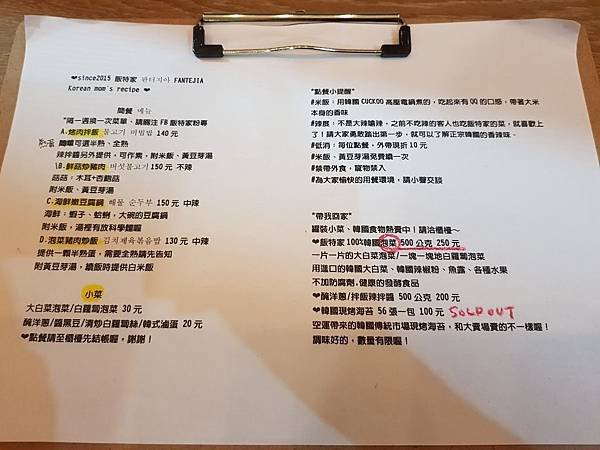 ❤since2015 飯特家 판터지아 FANTEJIA
Korean mom's recipe ❤
簡餐 메뉴
*隔一週換一次菜單、請關注 FB 飯特家粉專
A.烤肉拌飯 불고기 비빔밥 140 元
煎蛋 雞蛋可選半熟、全熟
辣拌醬另外提供，可作素，附米飯、黃豆芽湯
\B.鮮菇炒豬肉 버섯불고기 150 元 不辣
菇菇：木耳+杏鮑菇
附米飯、黃豆芽湯
C.海鮮嫩豆腐鍋 해물 순두부 150 元 中辣
海鮮：蝦子、蛤蜊，大碗的豆腐鍋
附米飯，湯裡有放科學麵喔
D.泡菜豬肉炒飯 김치제육볶음밥 130 元 中辣
提供一顆半熟蛋，需要全熟請先告知
附黃豆芽湯，續飯時提供白米飯
小菜
大白菜泡菜/白蘿蔔泡菜 30 元
醃洋蔥/醬黑豆/清炒白蘿蔔絲/韓式滷蛋 20 元
❤點餐請至櫃檯先結帳喔，謝謝！
*點餐小提醒*
#米飯：用韓國 CUCKOO 高壓電鍋煮的，吃起來有 QQ 的口感，帶著大米
本身的香味
#辣度：不是大辣嗆辣，之前不吃辣的客人也吃飯特家的菜，就喜歡上
了！請大家勇敢踏出第一步，就可以了解正宗韓國的香辣味。
#低消：每位點餐，外帶現折 10 元
#米飯、黃豆芽湯免費續一次
#禁帶外食，寵物禁入
#為大家愉快的用餐環境，請小聲交談
*帶我回家*
罐裝小菜、韓國食物熱賣中！請洽櫃檯～
❤飯特家 100%韓國泡菜 500 公克 250 元
一片一片的大白菜泡菜/一塊一塊地白蘿蔔泡菜
用進口的韓國大白菜、韓國辣椒粉、魚露、各種水果
不加防腐劑.健康的發酵食品
❤醃洋蔥/拌飯辣拌醬 500 公克 200 元
❤韓國現烤海苔 56 張一包 100 元 SOLD OUT
空運帶來的韓國傳統市場現烤海苔，和大賣場賣的不一樣喔！
調味好的，數量有限喔！